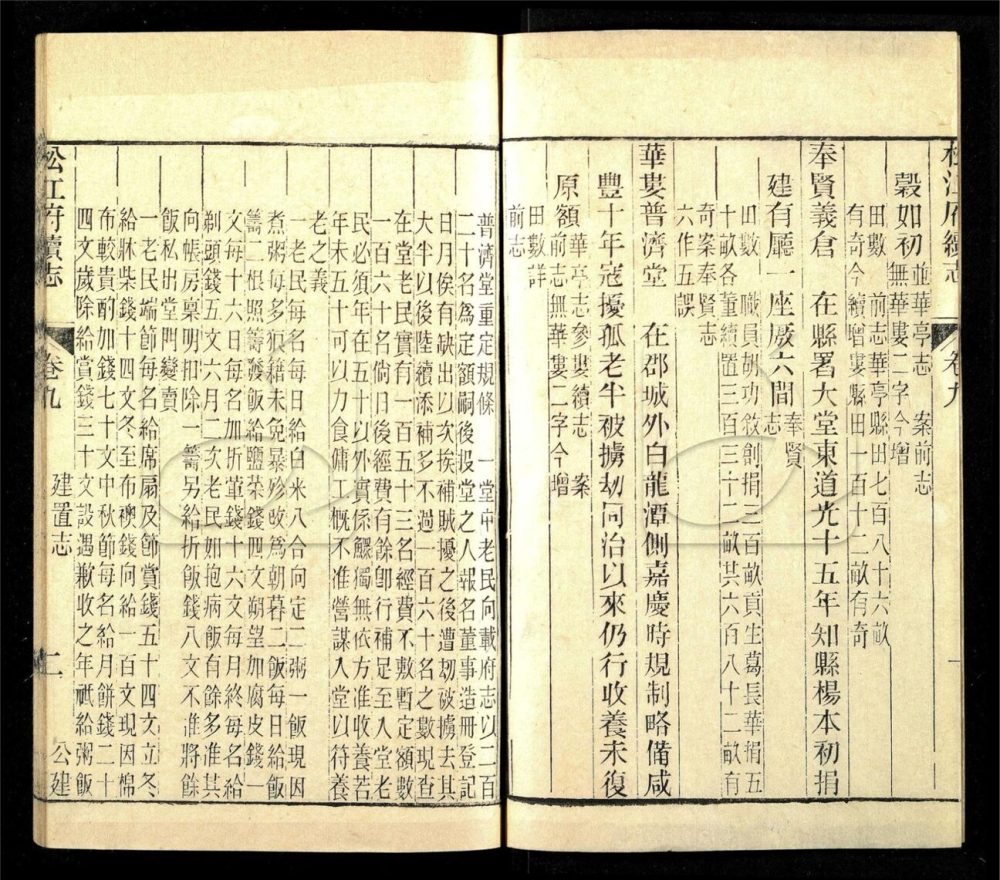 松江府續志
卷九
穀如初並華亭志　案前志
無華婁二字今增
田數　前志華亭縣田七百八十六畝
有奇今續增婁縣田一百十二畝有奇
奉賢義倉　在縣署大堂東道光十五年知縣楊本初捐
建有廳一座廒六間奉賢
志
田數　職員胡功攽創捐三百畝貢生葛長華捐五
十畝各董續置三百三十二畝共六百八十二畝有
奇案奉賢志
六作五誤
華婁普濟堂　在郡城外白龍潭側嘉慶時規制略備咸
豐十年寇擾孤老半被擄刼同治以來仍行收養未復
原額華亭志參婁續志　案
前志無華婁二字今增
田數詳
前志
普濟堂重定規條　一堂中老民向載府志以二百
二十名爲定額嗣後投堂之人報名董事造冊登記
日月俟有缺出以次挨補賊擾之後遭刼被擄去其
大半以後陸續添補多不過一百六十名之數現查
在堂老民實有一百五十三名經費不敷暫定額數
一百六十名倘日後經費有餘卽行補足至入堂老
民必須年在五十以外實係鰥獨無依方准收養若
年未五十可以力食傭工概不准營謀入堂以符養
老之義
一老民每名每日給白米八合向定二粥一飯現因
煮粥每多狼籍未免暴殄改爲朝暮二飯每日給飯
籌二根照籌發飯給鹽菜錢四文朔望加腐皮錢一
文每十六日每名加折葷錢十六文每月終每名給
剃頭錢五文六月二次老民如抱病飯有餘多准其
向帳房稟明扣除一籌另給折飯錢八文不准將餘
飯私出堂門變賣
一老民端節每名給席扇及節賞錢五十四文立冬
給牀柴錢十四文冬至布襖錢向給一百文現因棉
布較貴酌加錢七十文中秋節每名給月餅錢二十
四文歲除給賞錢三十文設遇歉收之年祇給粥飯
松江府續志
卷九
建置志
二
公建